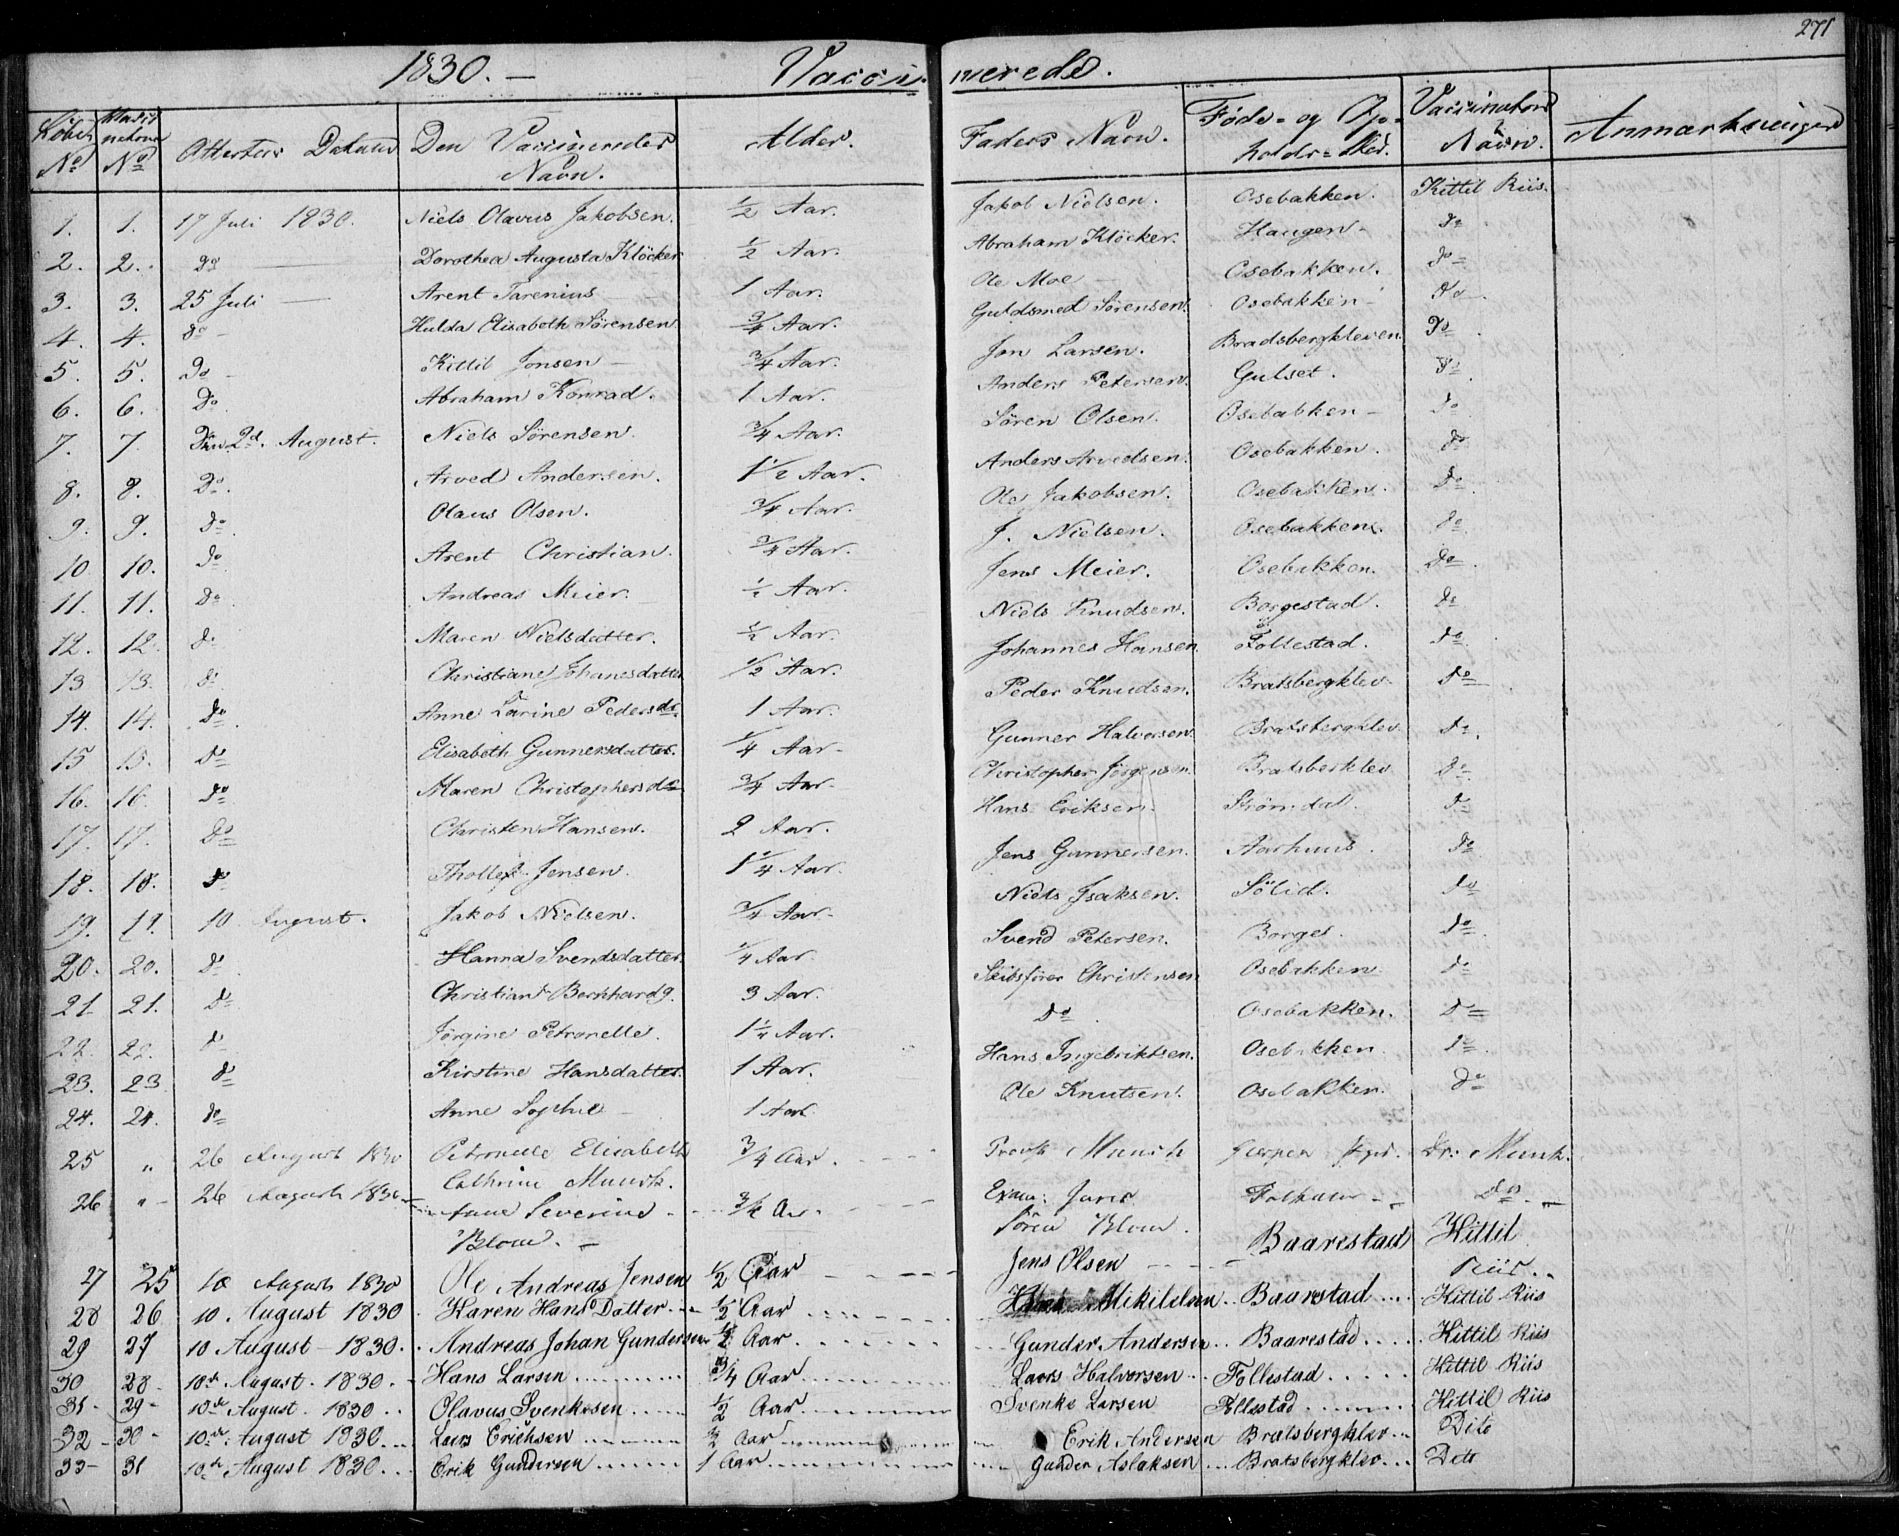 271
1830. – Vaccinerede.
Løbe No | Vaccinations No | Attestens Datum | Den Vaccineredes Navn. | Alder. | Faders Navn. | Føde- og Opholds-Sted. | Vaccinatens Navn. | Anmærkninger
1. | 1. | 17 Juli 1830. | Niels Olavus Jakobsen. | 1/2 Aar. | Jakob Nielsen. | Osebakken. | Kittil Riis.
2. | 2. | Do | Dorothea Augusta Klöcker | 1/2 Aar. | Abraham Klöcker. | Haugen - | do
3. | 3. | 25 Juli — | Arent Tarenius | 1 Aar. | Ole Moe | Osebakken. | do
4. | 4. | do - | Hulda Elisabeth Sørensen. | 3/4 Aar. | Guldsmed Sörensen. | Osebakken - | do
5. | 5. | Do - | Kittil Jonsen – | 3/4 Aar. | Jon Larsen. | Bradsbergkleven. | Do
6. | 6. | Do | Abraham Konrad. | 1 Aar. | Anders Petersen. | Gulset. | do
7. | 7. | Den 2d. August. | Niels Sörensen. | 3/4 Aar. | Sören Olsen. | Osebakken - | do
8. | 8. | Do. | Arved Andersen. | 1 1/2 Aar. | Anders Arvedsen. | Osebakken. | do
9. | 9. | do | Olaus Olsen. | 3/4 Aar. | Ole Jakobsen. | Osebakken. | do
10 | 10. | do | Arent Christian. | 3/4 Aar. | J. Nielsen. | Osebakken. | do
11. | 11. | do | Andreas Meier. | Aar. | Jens Meier. | Osebakken. | do
12. | 12. | do | Maren Nielsdatter. | 1/2 Aar. | Niels Knudsen. | Borgestad. | do
13 | 13. | do | Christiane Johanesdatter | 1/2 Aar. | Johannes Hansen | Follestad. | do
14. | 14. | do | Anne Larine Pedersdr | 1 Aar. | Peder Knudsen. | Bratsbergklev | do
15 | 15. | do | Elisabeth Gunnersdatter. | 1/4 Aar - | Gunner Halvorsen | Bratsbergklev | do.
16. | 16. | do | Maren Christophersdr | 3/4 Aar - | Christopher Jörgensen. | Bratsberklev | do
17. | 17. | do | Christen Hansen. | 2 Aar. | Hans Eriksen. | Strömdal. | do
18. | 18. | do | Thollef Jensen. | 1 1/4 Aar. | Jens Gunnersen. | Aarhuus. | do
19. | 19. | 10 August. | Jakob Nielsen. | 3/4 Aar - | Niels Isaksen. | Sölid. | do
20. | 20. | do | Hanna Svendsdatter. | 1/4 Aar. | Svend Petersen. | Borges. | do
21. | 21. | do | Christian Bernhard | 3 Aar. | Skibsfører Christensen | Osebakken | do
22. | 22. | do | Jörgine Petronelle. | 1 1/4 Aar. | Do | Osebakken. | do
23. | 23. | do | Kirstine Hansdatter. | 1 Aar. | Hans Ingebriktsen. | Osebakken. | do
24. | 24. | do | Anne Sophie – | 1 Aar. | Ole Knutsen. | Osebakken. | do
25 | „ | 26 August 1830 | Petronelle Elisabeth Cathrine Munch. | 3/4 Aar. | Provst Munch | Gierpen Pgd. | Dr: Munk.
26 | „ - | 26 Augusti 1830 | Anne Severine Blom. – | 3/4 Aar. | Exam: Juris Sören Blom. | | Do. –
27 | 25 | 10 August 1830 | Ole Andreas Jensen | 1/2 Aar | Jens Olsen | Baarestad | Kittil Riis.
28 | 26 | 10. August 1830 | Karen Hans Datter | 1/2 Aar | Hans Mikkelsen | Baarestad | Kittil Riis
29 | 27 | 10 August – 1830. | Andreas Johan Gundersen | 1/2 Aar | Gunder Andersen | Baarestad | Kittil Riis
30 | 28 - | 10de August. 1830 | Hans Larsen | 3/4 Aar | Lars Halvorsen | Follestad | Kittil Riis
31 - | 29 - | 10de August. 1830 | Olavus Svenkesen | 1/2 Aar | Svenke Larsen | Follestad | Kittil Riis
32 - | 30 - | 10de August 1830 | Lars Erichsen | 1/2 Aar | Erik Andersen | Bratsbergklev | Dito
33 - | 31 | 10de August 1830 | Erik Gundersen | 1 Aar | Gunder Aslaksen | Bratsbergklev | Dito